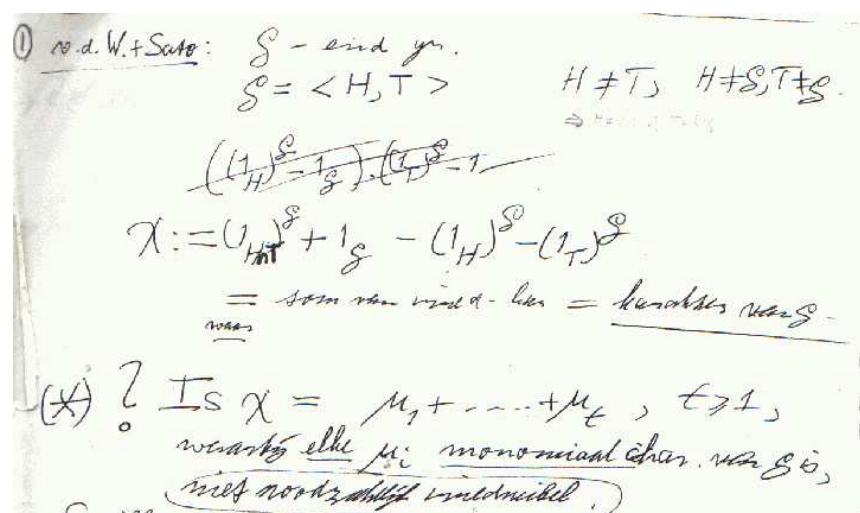 ① v.d. W. + Sato: G - eind gr.
G = < H, T >   H ≠ T, H ≠ G, T ≠ G.
((1_H)^G - 1_G).(1_T)^G - 1
χ := (1_{H∩T})^G + 1_G - (1_H)^G - (1_T)^G
= som van = karakter van G.
waar
(*) ? Is χ = μ_1 + .... + μ_t, t ≥ 1,
waarbij elke μ_i monomiaal char. van G is,
niet noodzakelijk irreducibel.